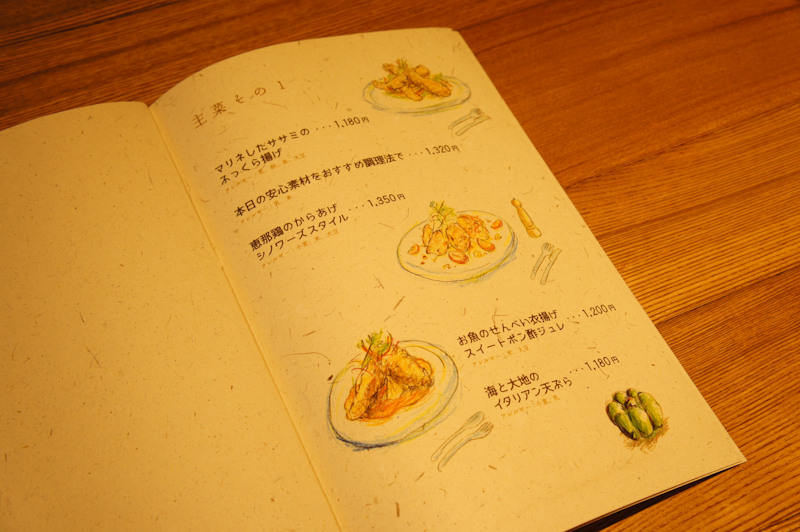 主菜その1
マリネしたササミの ・・・1,180円
ふっくら揚げ
本日の安心素材をおすすめ調理法で ・・・1,320円
恵那鶏のからあげ ・・・1,350円
シノワーズスタイル
お魚のせんべい衣揚げ ・・・1,200円
スイートポン酢ジュレ
海と大地の ・・・1,180円
イタリアン天ぷら